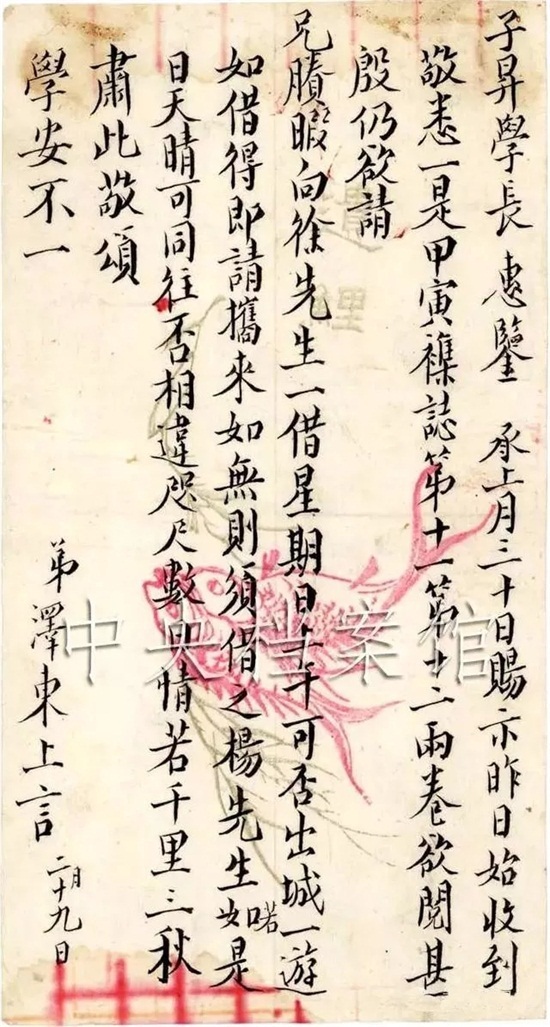 子昇學長 惠鑒 承上月三十日賜示昨日始收到
敬悉一是甲寅襍誌第十一第十二兩卷欲閱甚
殷仍欲請
兄賸暇向徐先生一借星期日上午可否出城一遊
如借得即請攜來如無則須借之楊先生者如是
日天晴可同往否相違咫尺數日情若千里三秋
肅此敬頌
學安不一
弟澤東上言 二月十九日
中央档案馆